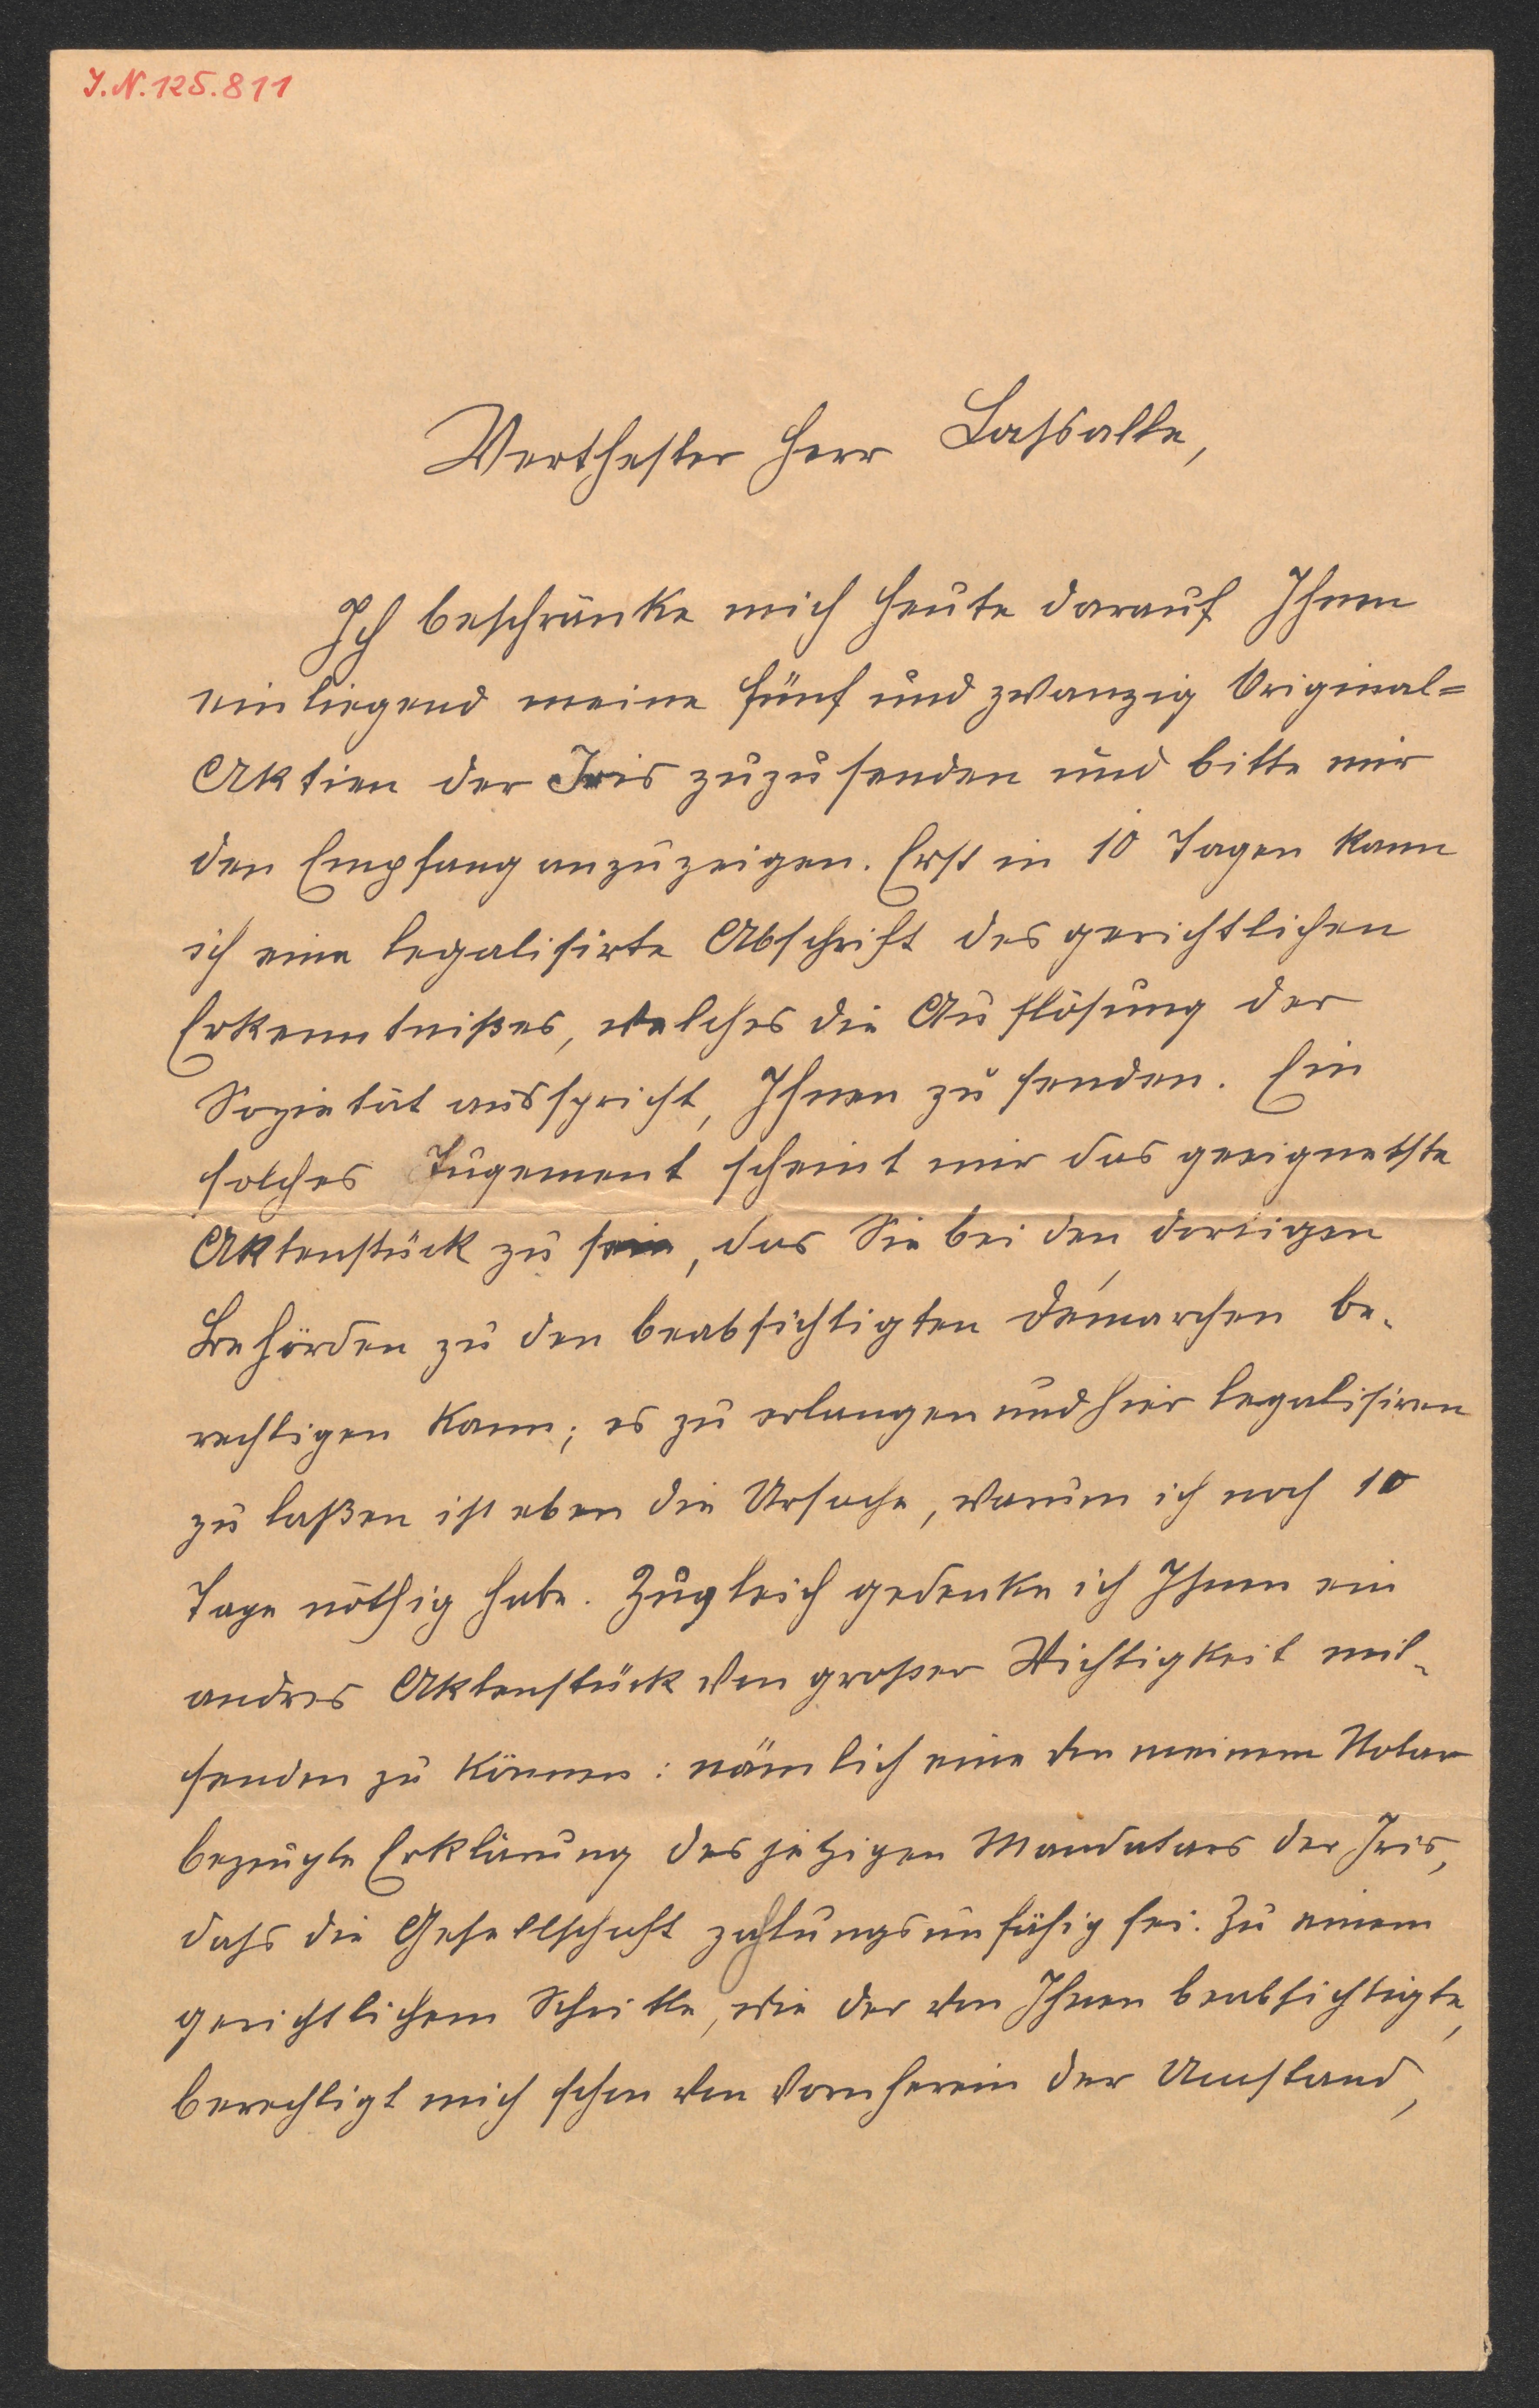 J.N. 125.811
Werthester Herr Lassalle,
Ich beschränke mich heute darauf Ihnen
einliegend meine fünf und zwanzig Original=
Aktien der Iris zuzusenden und bitte mir
den Empfang anzuzeigen. Erst in 10 Tagen kann
ich eine legalisirte Abschrift des gerichtlichen
Erkenntnißes, welches die Auflösung der
Sozietät ausspricht, Ihnen zu senden. Ein
solches Jugement scheint mir das geeignetste
Aktenstück zu sein, das Sie bei den dortigen
Behörden zu den beabsichtigten démarchen be-
rechtigen kann; es zu erlangen und hier legalisiren
zu laßen ist eben die Ursache, warum ich noch 10
Tage nöthig habe. Zugleich gedenke ich Ihnen ein
andres Aktenstück von großer Wichtigkeit mit-
senden zu können: nämlich eine von meinem Notar
bezeugte Erklärung des jetzigen Mandatars der Iris,
dass die Gesellschaft zahlungsunfähig sei. Zu einem
gerichtlichem Schritte, wie der von Ihnen beabsichtigte,
berechtigt mich schon von vornherein der Umstand,